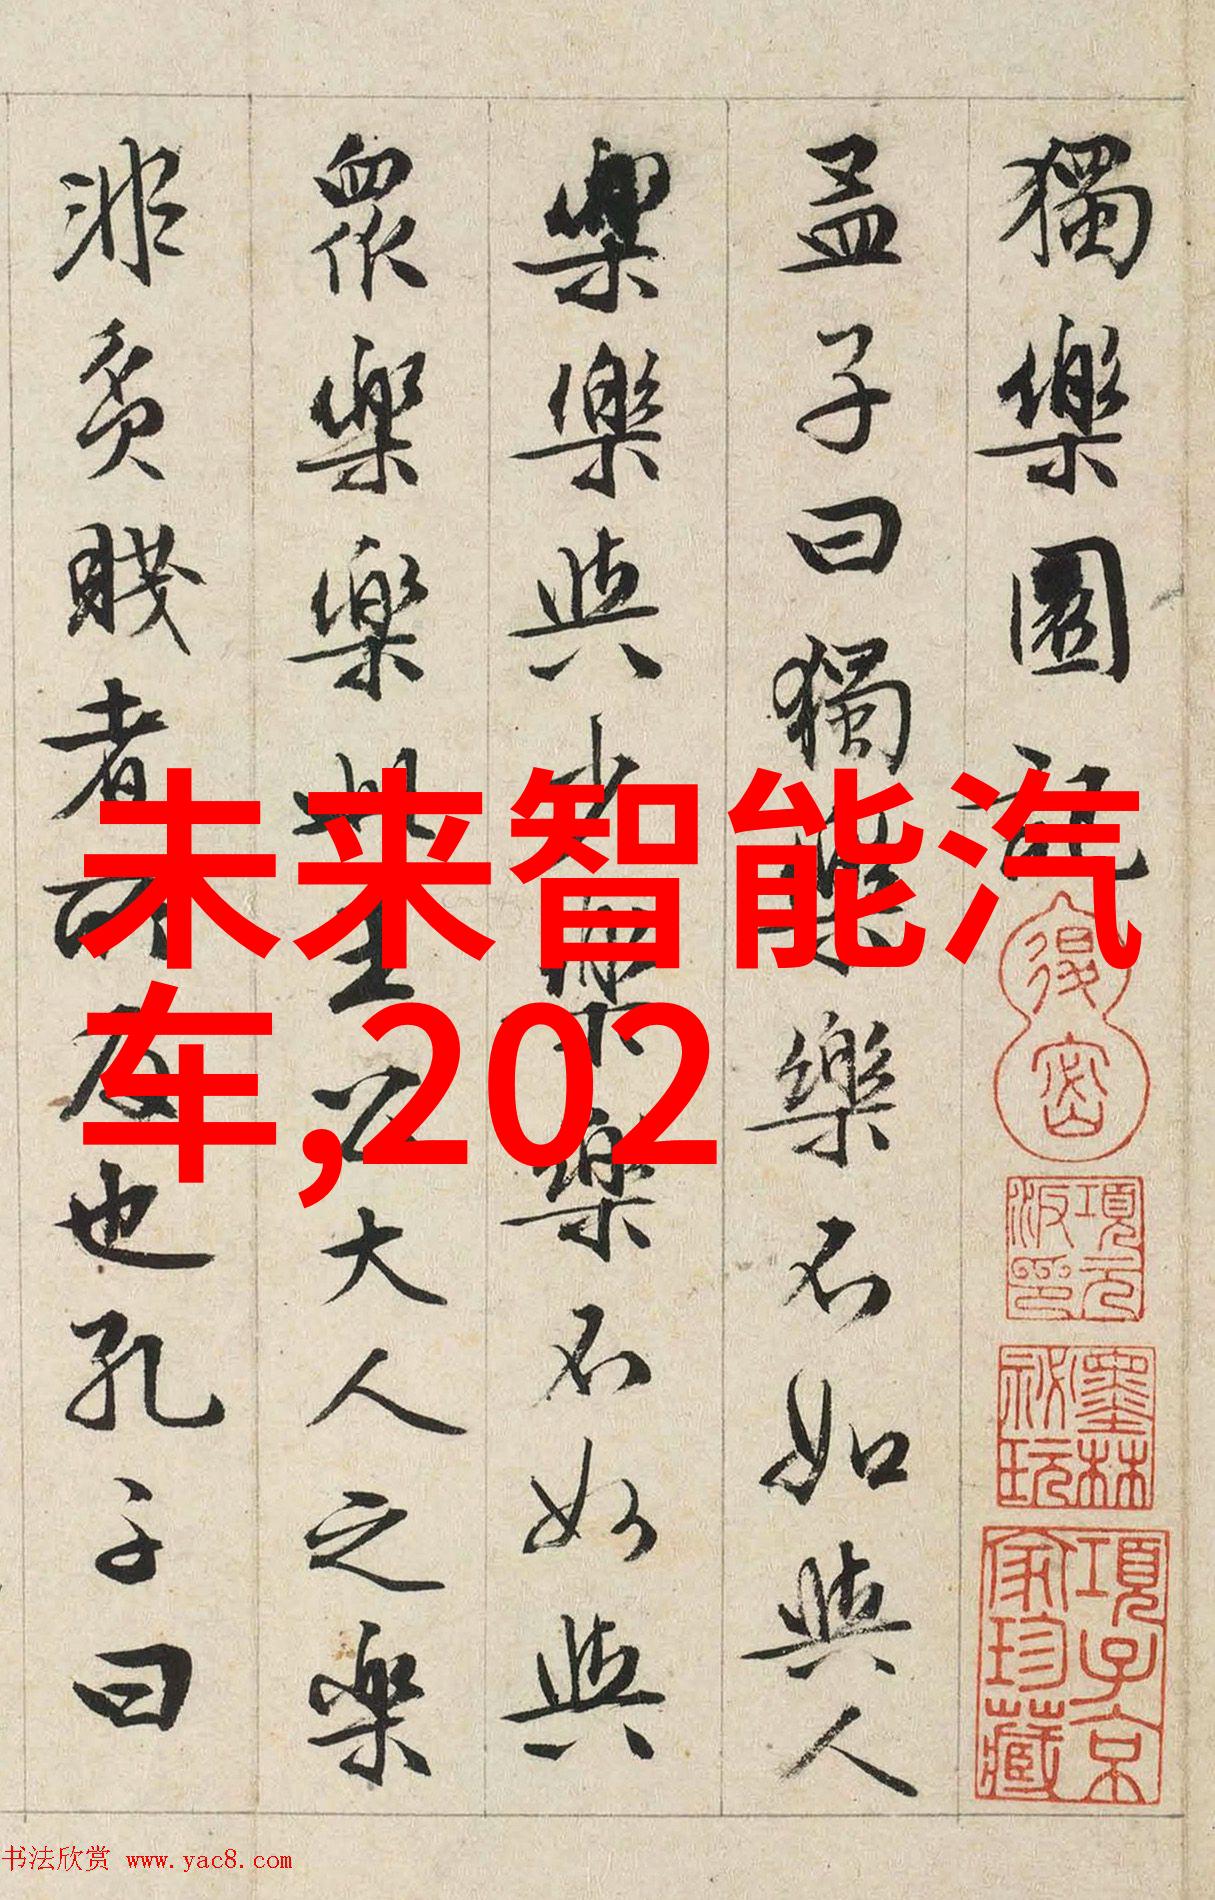 獨樂園記
孟子曰獨樂樂不如與人
樂樂與少樂樂不如與
眾樂樂此王公大人之樂
非貧賤者所及也孔子曰
未来智能汽
车,202
項元
汳印
墨林
祕玩
項子京
家珍藏
书法欣赏 www.yac8.com